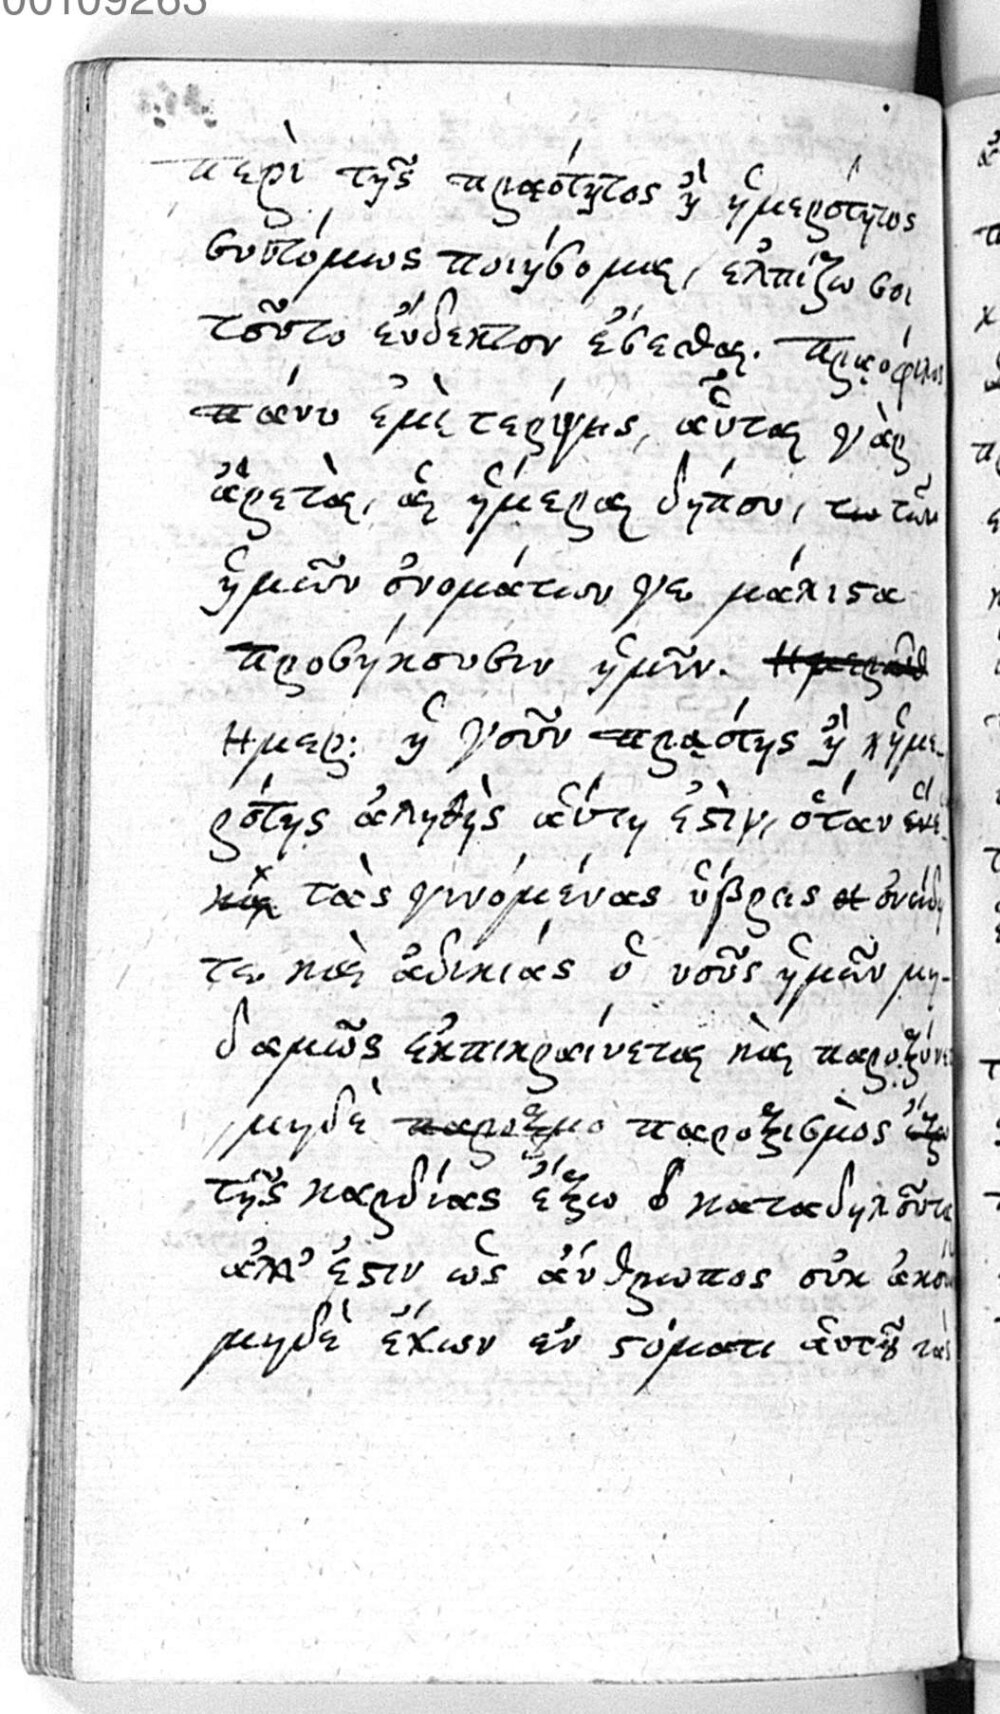 00109263
περὶ τῆς πραότητος ἢ ἡμερότητος
συντόμως ποιήσομαι, ἐλπίζω σοι
τοῦτο εὔδεκτον ἔσεσθαι. Πραόφιλος
πάνυ ἐμὲ τέρψεις, αὗται γὰρ
ἀρεταὶ, αἱ ἥμεραι δήπου, τω τῶν
ἡμῶν ὀνομάτων γε μάλιστα
προσήκουσιν ἡμῖν. Ημεριοθ
Ημερ: ἡ γοῦν πραότης ἢ χἠμε-
ρότης ἀληθὴς αὕτη ἐστὶν, ὅταν
τὰς γινομένας ὕβρεις ὀνείδη
τε καὶ ἀδικίας ὁ νοῦς ἡμῶν μη-
δαμῶς ἐκπικραίνεται καὶ παροξύνε
μηδὲ παροξμο παροξισμὸς ἔξω
τῆς καρδίας ἔξω καταδηλοῦται
ἀλλ' ἔστιν ὡς ἄνθρωπος οὐκ ἀκού
μηδὲ ἔχων ἐν στόματι αὐτοῦ